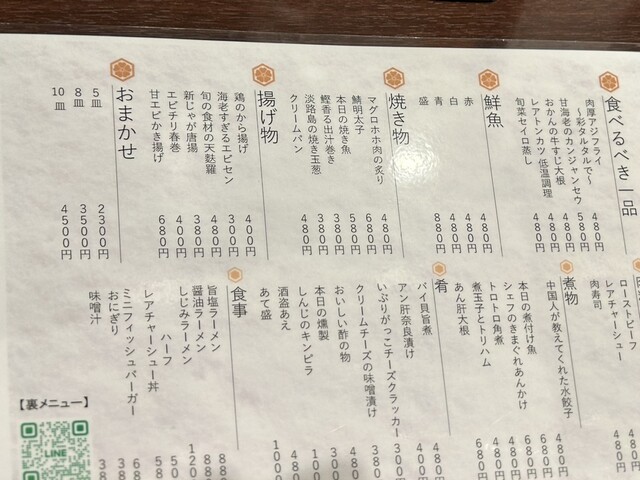 食べるべき一品
肉厚アジフライ
～彩タルタルで～ 480円
甘海老のカンジャンセウ 580円
おかんの牛すじ大根 480円
レアトンカツ 低温調理 480円
旬菜セイロ蒸し 480円
鮮魚
赤 480円
白 480円
青 480円
盛 880円
焼き物
マグロホホ肉の炙り 480円
鯖明太子 680円
本日の焼き魚 580円
鰹香る出汁巻き 380円
淡路島の焼き玉葱 380円
クリームパン 480円
揚げ物
鶏のから揚げ 400円
海老すぎるエビセン 300円
旬の食材の天麩羅 480円
新じゃが唐揚 380円
エビチリ春巻 400円
甘エビかき揚げ 680円
おまかせ
5皿 2300円
8皿 3500円
10皿 4500円
ローストビーフ 480円
レアチャーシュー 480円
肉寿司
煮物
中国人が教えてくれた水餃子 480円
本日の煮付け魚 680円
シェフのきまぐれあんかけ 680円
トロトロ角煮 480円
煮玉子とトリハム 480円
あん肝大根 680円
肴
バイ貝旨煮 480
アン肝奈良漬け 400
いぶりがっこチーズクラッカー
クリームチーズの味噌漬け
おいしい酢の物
本日の燻製
しんじのキンピラ
酒盗あえ
あて盛
食事
旨塩ラーメン
醤油ラーメン
しじみラーメン
ハーフ
レアチャーシュー丼
ミニフィッシュバーガー
おにぎり
味噌汁
【裏メニュー】
LINE